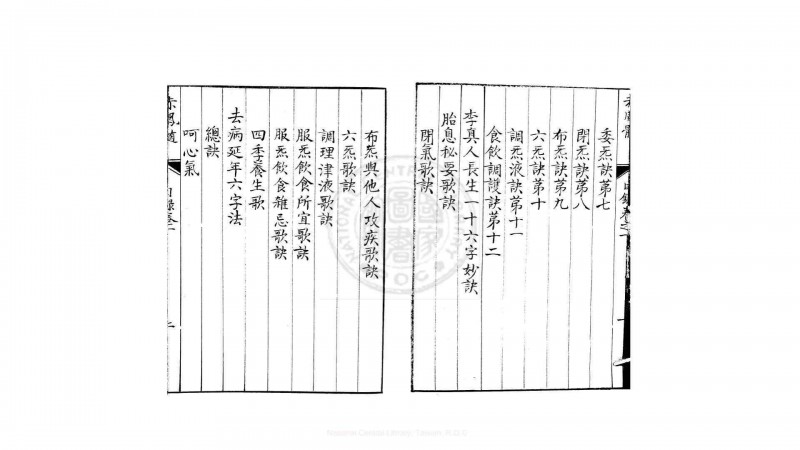 委炁訣第七
閉炁訣第八
布炁訣第九
六炁訣第十
調炁液訣第十一
食飲調護訣第十二
李真人長生一十六字妙訣
胎息秘要歌訣
閉氣歌訣
布炁與他人攻疾歌訣
六炁歌訣
調理津液歌訣
服炁飲食所宜歌訣
服炁飲食雜忌歌訣
四季養生歌
去病延年六字法
總訣
呵心氣
赤鳳髓
目錄卷之一
二